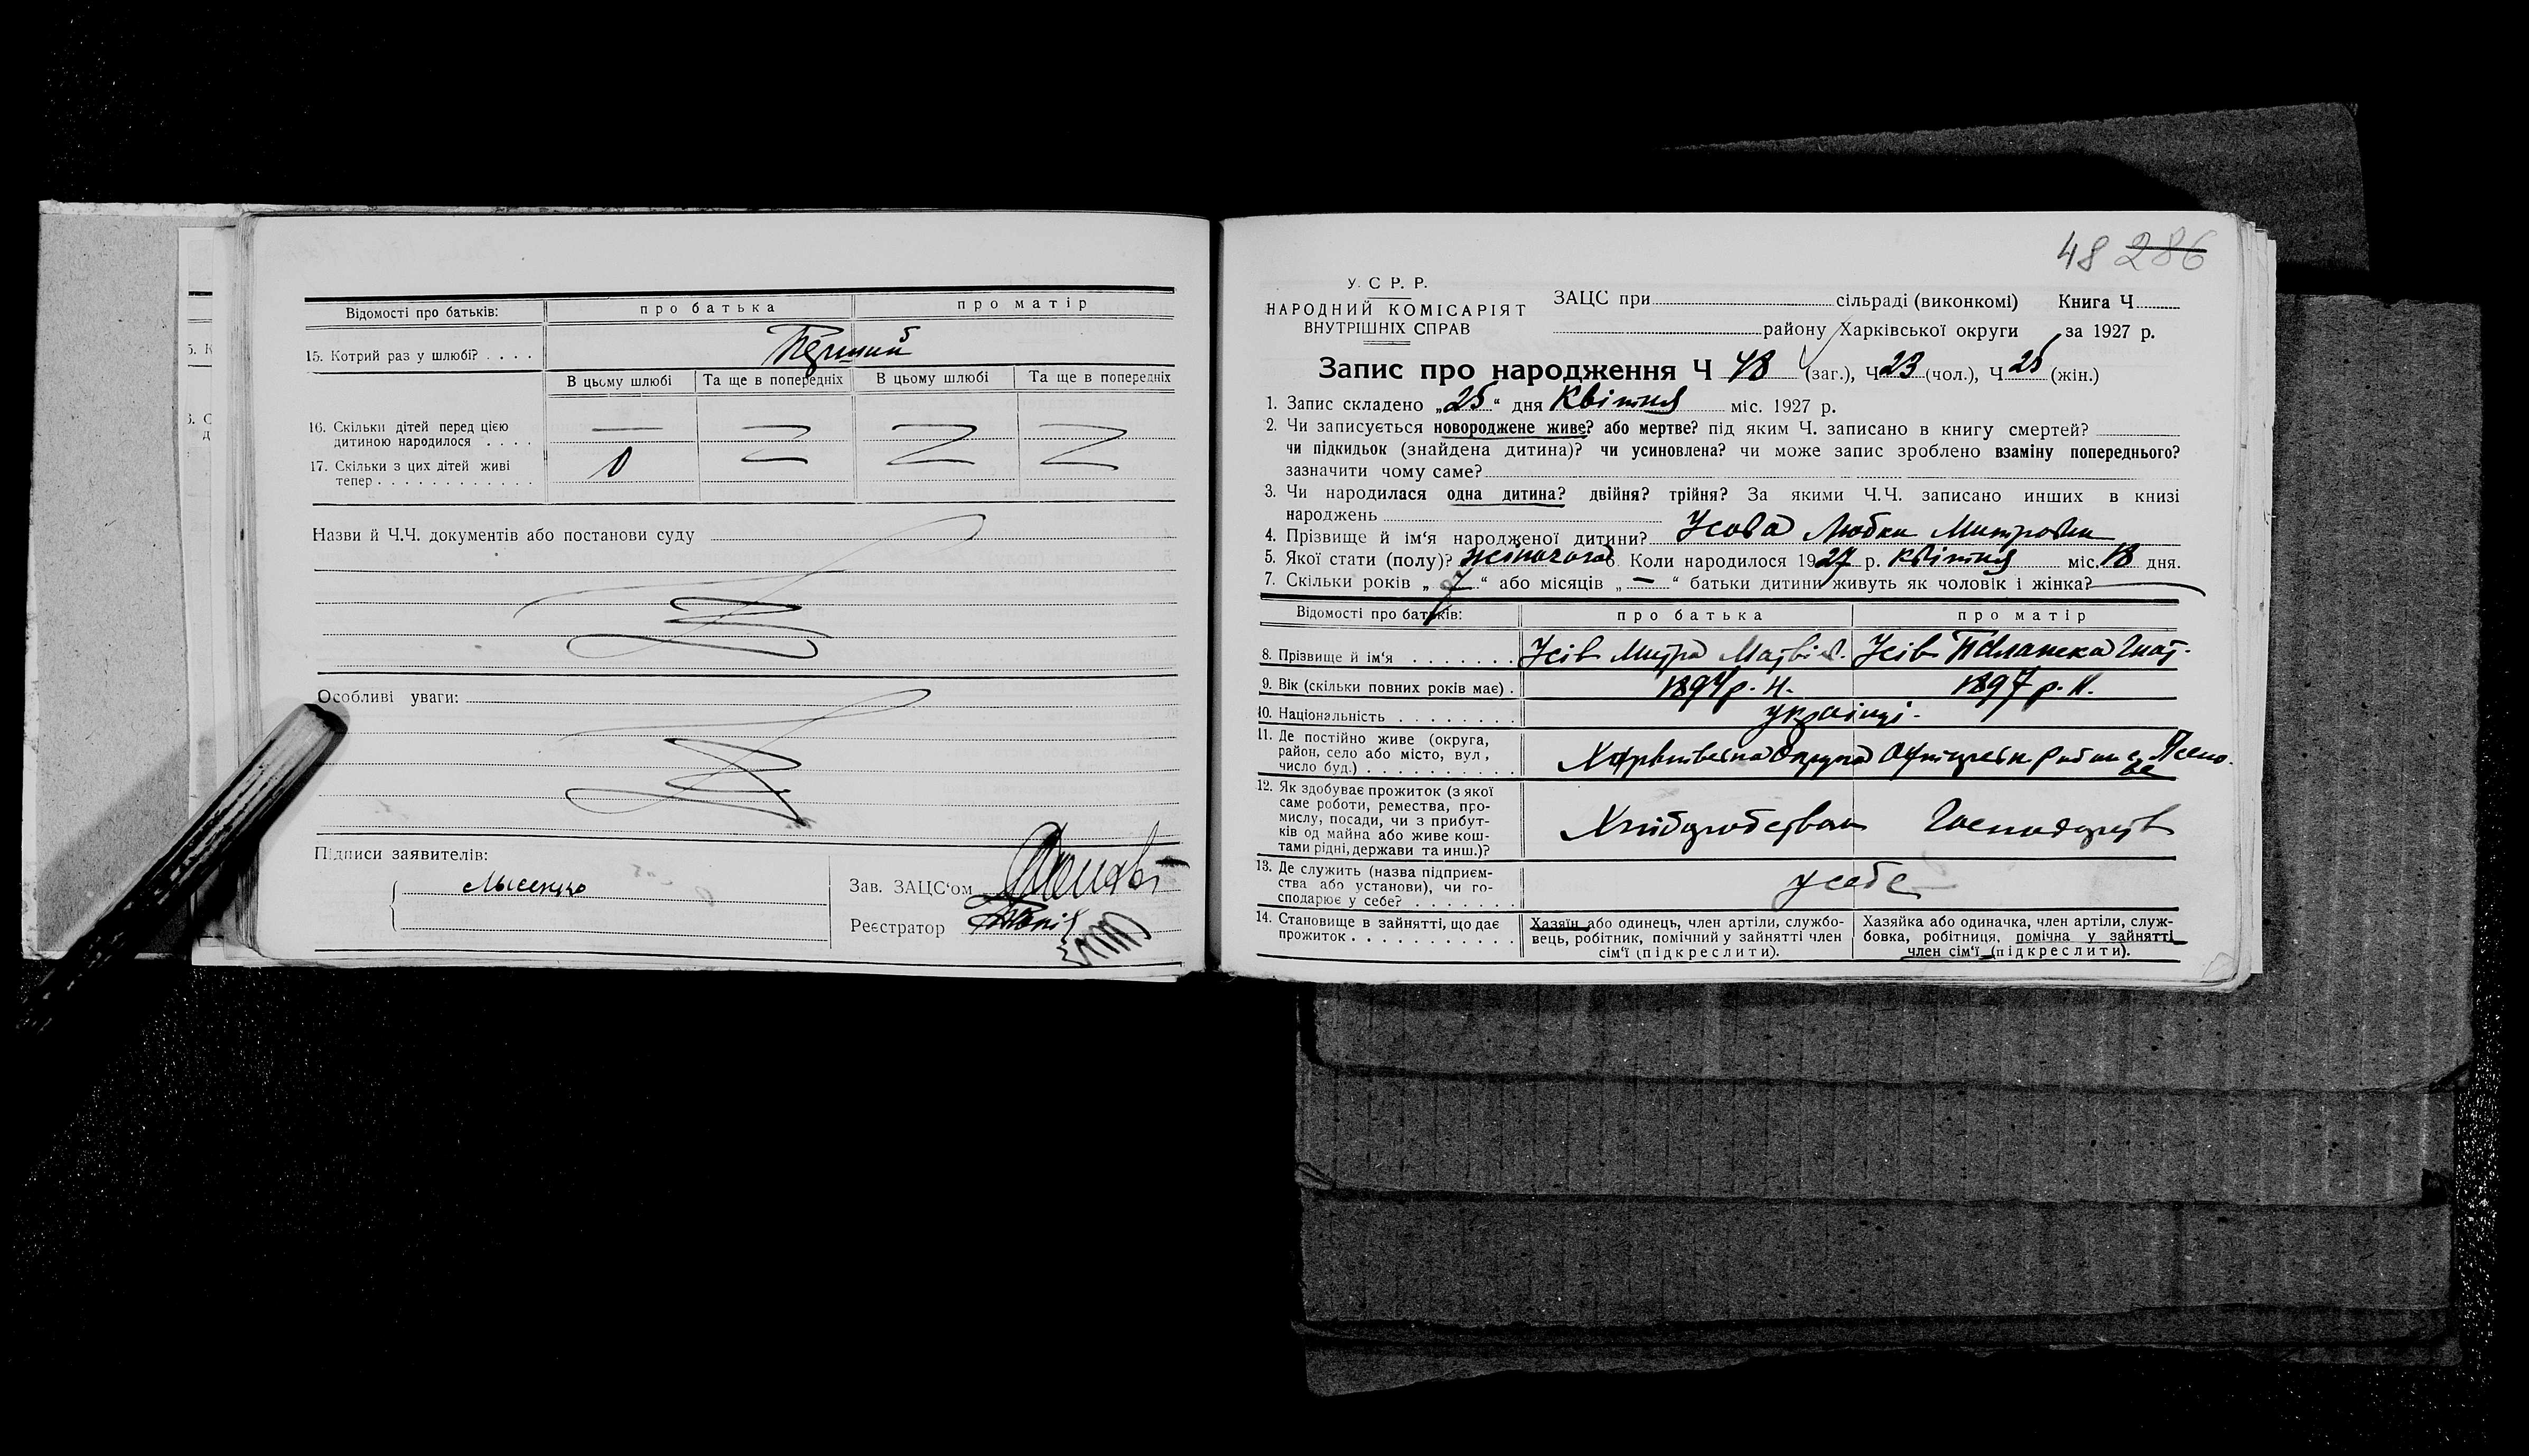 Відомості про батьків: про батька про матір
15. Котрий раз у шлюбі? . . . . Перший
В цьому шлюбі Та ще в попередніх В цьому шлюбі Та ще в попередніх
16. Скільки дітей перед цією
дитиною народилося . . . . —
17. Скільки з цих дітей живі
тепер . . . . . . . . . . . . 0
Назви й Ч.Ч. документів або постанови суду
Особливі уваги:
Підписи заявителів:
Зав. ЗАЦС‘ом
Реєстратор
48 286
У. С. Р. Р.
НАРОДНИЙ КОМІСАРІЯТ
ВНУТРІШНІХ СПРАВ
ЗАЦС при сільраді (виконкомі) Книга Ч
району Харківської округи за 1927 р.
Запис про народження Ч 48 (заг.), Ч 23 (чол.), Ч 25 (жін.)
1. Запис складено „25“ дня Квітня міс. 1927 р.
2. Чи записується новороджене живе? або мертве? під яким Ч. записано в книгу смертей?
чи підкидьок (знайдена дитина)? чи усиновлена? чи може запис зроблено взаміну попереднього?
зазначити чому саме?
3. Чи народилася одна дитина? двійня? трійня? За якими Ч.Ч. записано инших в книзі
народжень
4. Прізвище й ім‘я народженої дитини? Усова Любка Митровна
5. Якої стати (полу)? жіночого 6. Коли народилося 1927 р. квітня міс. 18 дня.
7. Скільки років „ “ або місяців „—“ батьки дитини живуть як чоловік і жінка?
Відомості про батьків: про батька про матір
8. Прізвище й ім‘я . . . . . . . Усів Митра Матвієв. Усів Палажка Гнат.
9. Вік (скільки повних років має) . 1894 р. н. 1897 р. н.
10. Національність . . . . . . . . українці.
11. Де постійно живе (округа,
район, село або місто, вул.,
число буд.) . . . . . . . . . . Харківська Округа
12. Як здобуває прожиток (з якої
саме роботи, ремества, про-
мислу, посади, чи з прибут-
ків од майна або живе кош-
тами рідні, держави та инш.)? Хліборобством
13. Де служить (назва підприєм-
ства або установи), чи го-
сподарює у себе? . . . . . . . у себе
14. Становище в зайнятті, що дає
прожиток . . . . . . . . . . .
Хазяїн або одинець, член артіли, службо-
вець, робітник, помічний у зайнятті член
сім‘ї (підкреслити).
Хазяйка або одиначка, член артіли, служ-
бовка, робітниця, помічна у зайнятті
член сім‘ї (підкреслити).